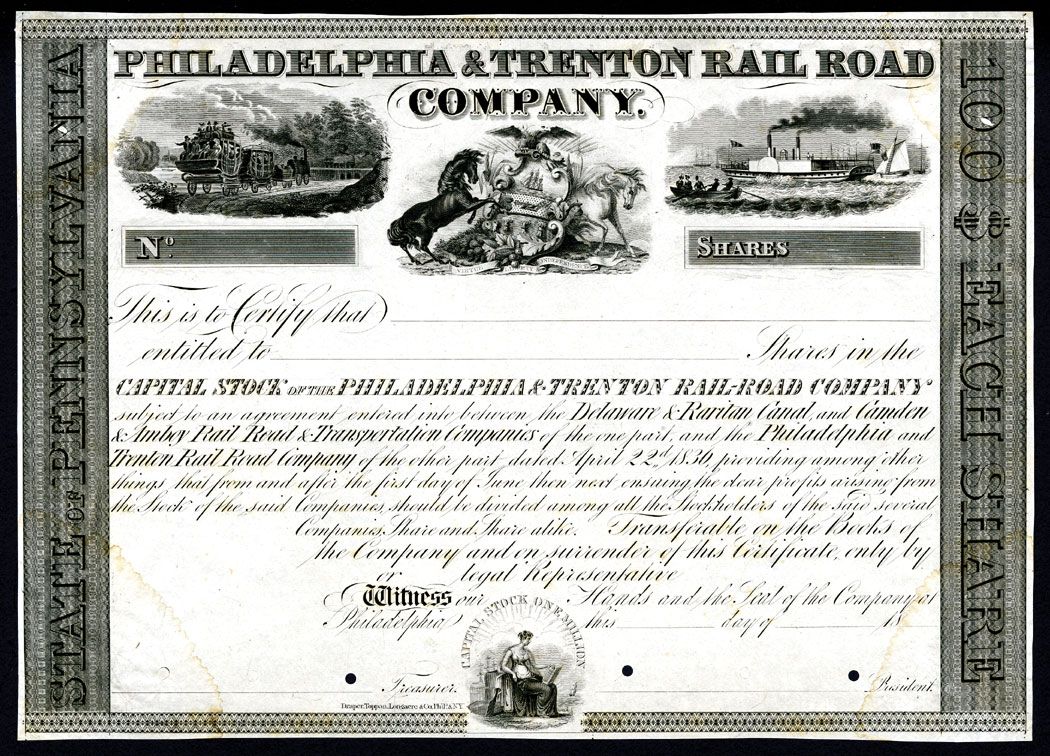 PHILADELPHIA & TRENTON RAIL ROAD
COMPANY.
STATE OF PENNSYLVANIA
100 $ EACH SHARE
No.
SHARES
VIRTUE LIBERTY INDEPENDENCE
This is to Certify that
entitled to Shares in the
CAPITAL STOCK OF THE PHILADELPHIA & TRENTON RAIL-ROAD COMPANY
subject to an agreement entered into between the Delaware & Raritan Canal, and Camden
& Amboy Rail Road & Transportation Companies of the one part, and the Philadelphia and
Trenton Rail Road Company of the other part, dated April 22d, 1836, providing among other
things that from and after the first day of June then next ensuing the clear profits arising from
the Stock of the said Companies, should be divided among all the Stockholders of the said several
Companies, Share and Share alike. Transferable on the Books of
the Company and on surrender of this Certificate, only by
or legal Representative
Witness our Hands and the Seal of the Company at
Philadelphia this day of 18
CAPITAL STOCK ONE MILLION
Treasurer. President.
Draper, Toppan, Longacre & Co. Phila. & N.Y.